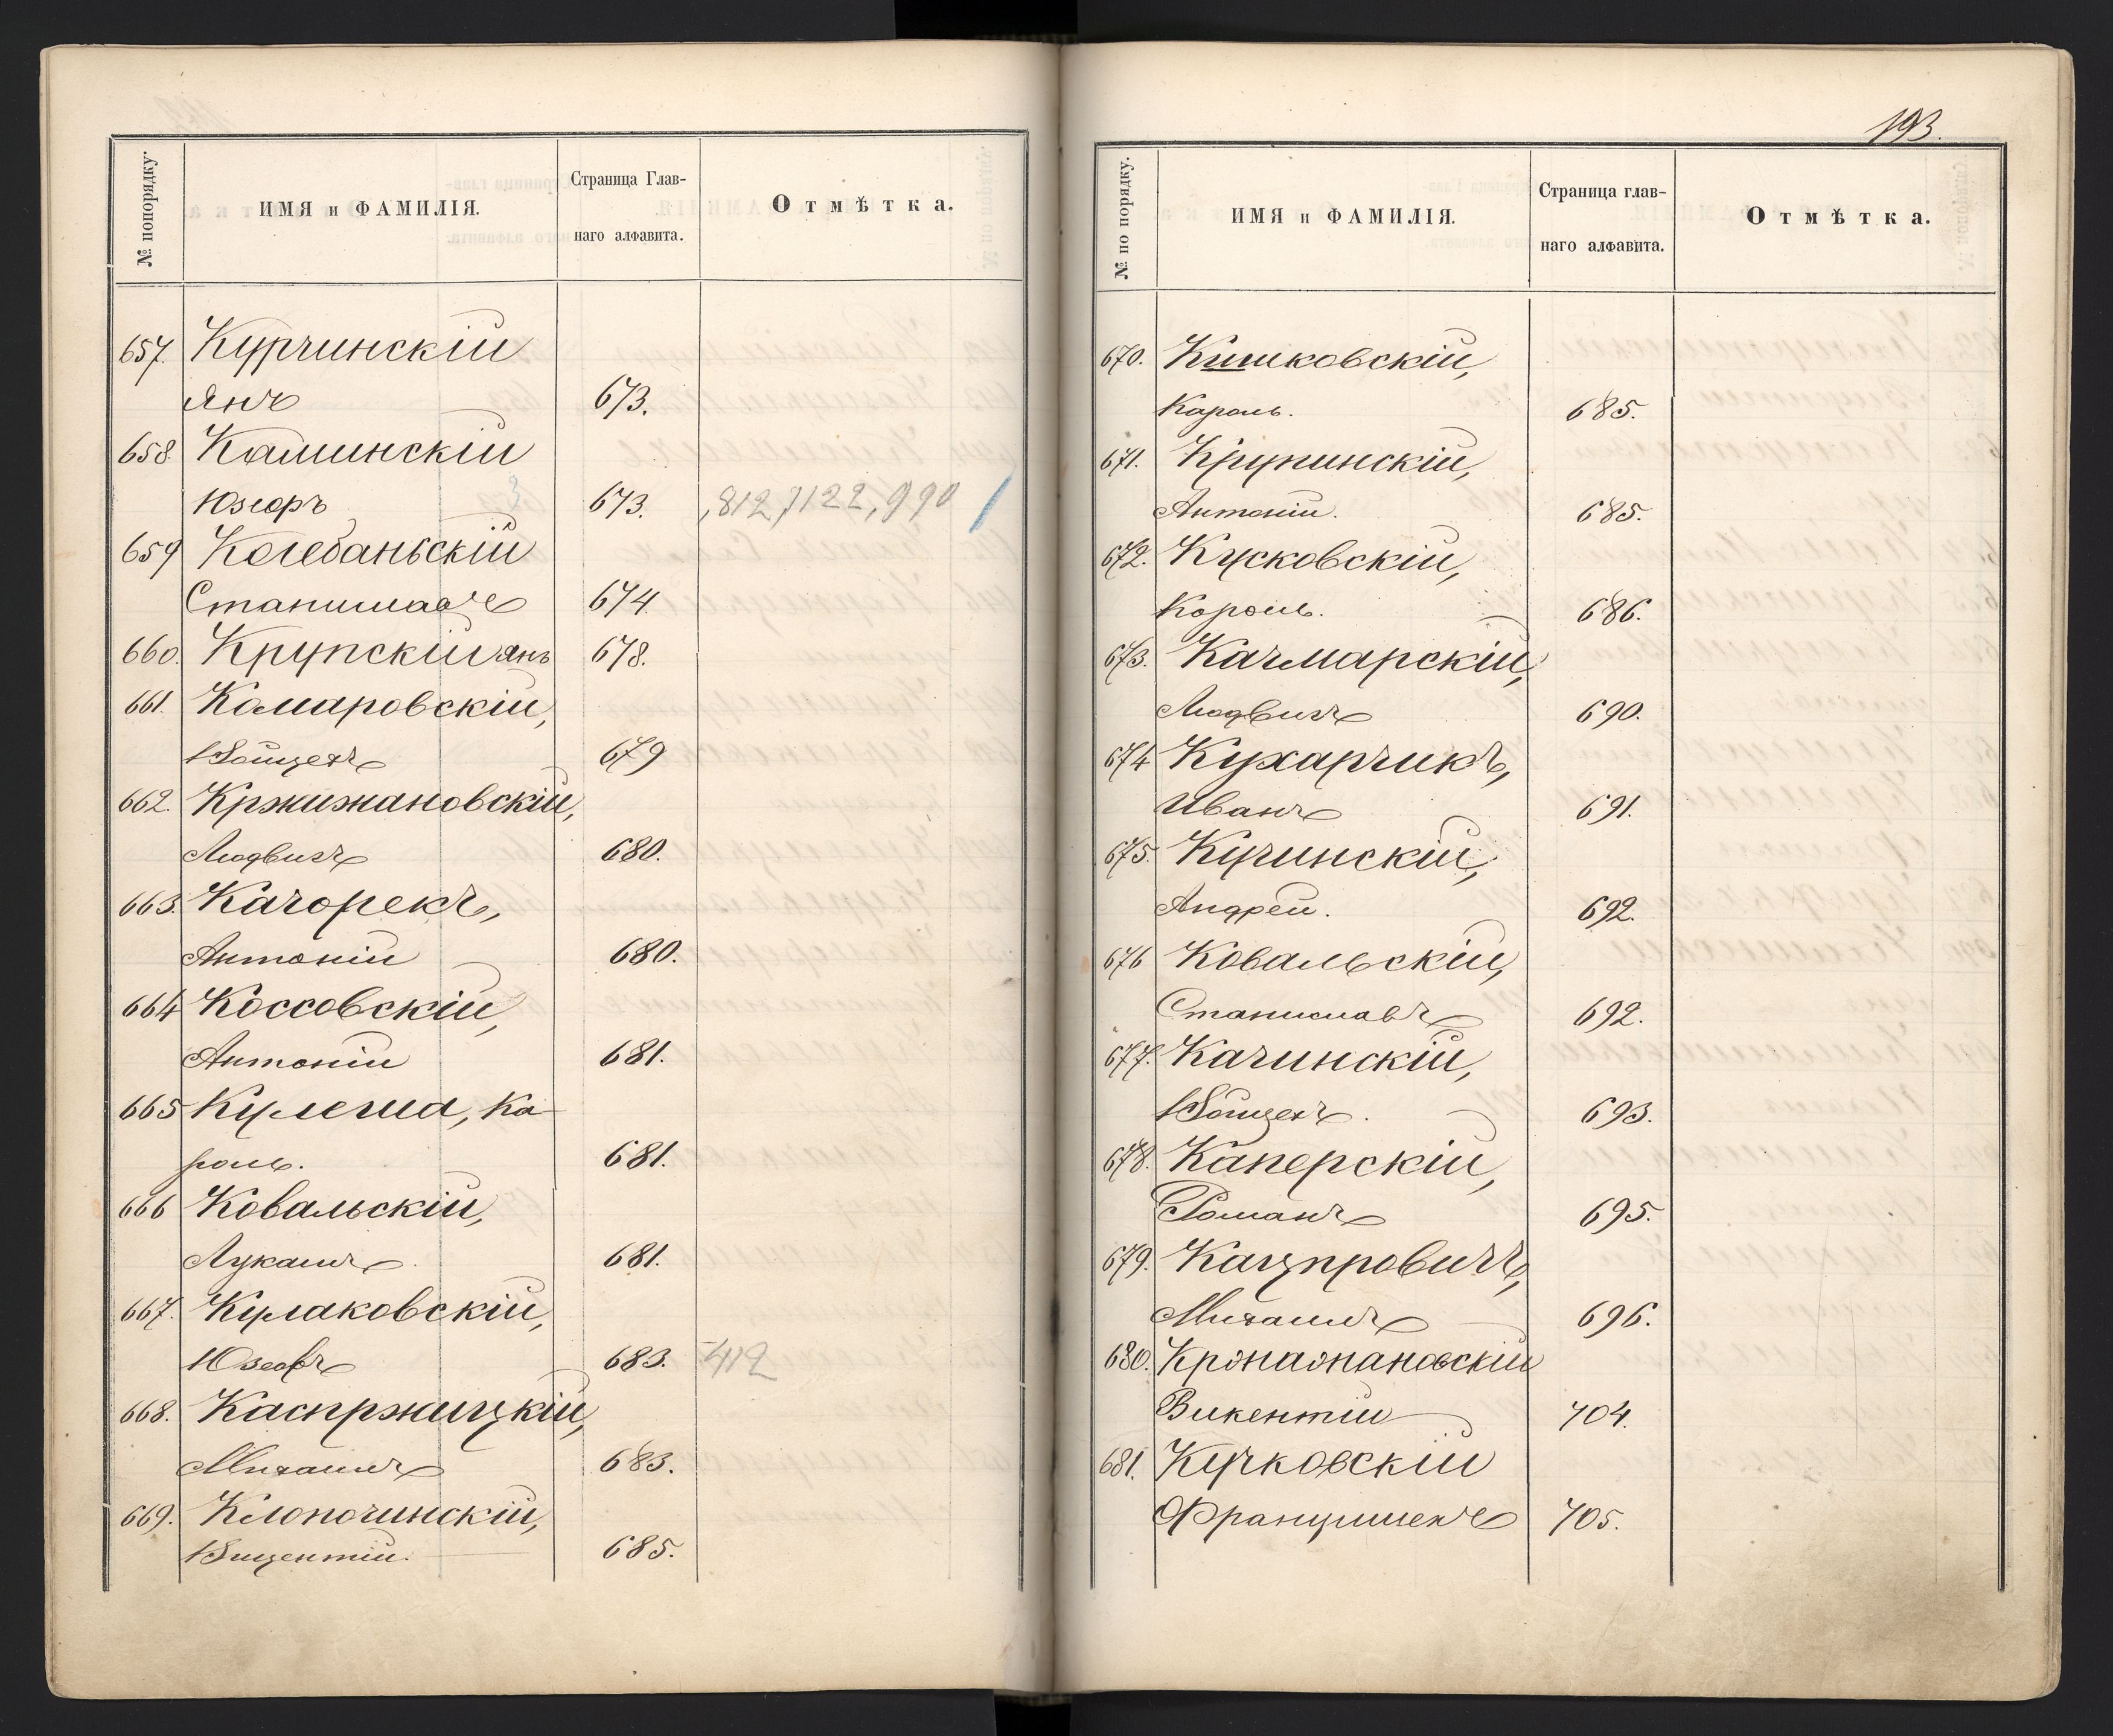 № попорядку.
ИМЯ и ФАМИЛІЯ.
Страница Глав-
наго алфавита.
Отмѣтка.
657. Курчинскій
Янъ 673.
658. Каминскій
Юзефъ 673. ,812,1122,990
659 Колебаньскій
Станиславъ 674.
660. Крупскій Янъ 678.
661. Комаровскій,
Войцехъ 679
662. Кржижановскій,
Людвигъ 680.
663. Качорекъ,
Антоній 680.
664 Коссовскій,
Антоній 681.
665 Кулеша, Ка-
роль. 681.
666 Ковальскій,
Лукашъ 681.
667. Кулаковскій,
Юзефъ 683. 412
668. Каспржицкій,
Михаилъ 683.
669. Клопочинскій,
Вицентій. 685.
193.
№ по порядку.
ИМЯ и ФАМИЛІЯ.
Страница глав-
наго алфавита.
Отмѣтка.
670. Кишковскій,
Кароль. 685.
671. Крупинскій,
Антоній. 685.
672. Кусковскій,
Кароль. 686.
673. Качмарскій,
Людвигъ 690.
674 Кухарчикъ,
Иванъ 691.
675. Кучинскій,
Андрей. 692.
676 Ковальскій,
Станиславъ 692.
677. Качинскій,
Войцехъ. 693.
678. Каперскій,
Романъ 695.
679. Кацпровичъ,
Михаилъ 696.
680. Кржижановскій
Викентій 704.
681. Кучковскій
Францишекъ 705.